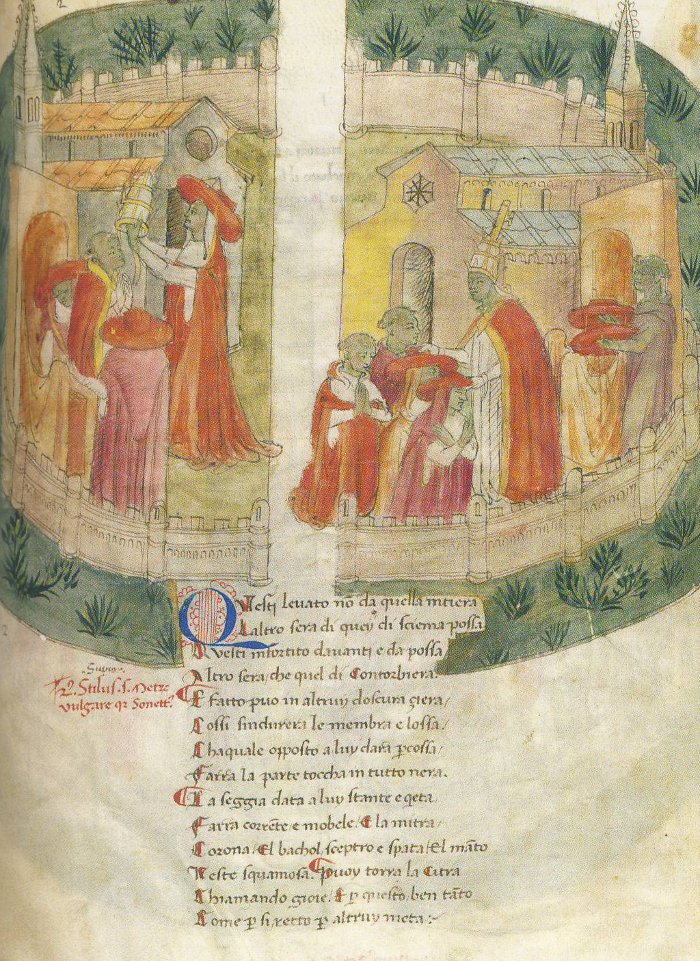 Questi levato nō da quella intiera
L altro sera di quey di sciema possa
Questi insortito davanti e da possa
Altro sera che quel di Contorbiera.
E fatto puo in altruy doscura ziera /
Cossi sindurera le membra e lossa /
Chaquale opposto a luy dara p̄cossa /
Farra la parte toccha in tutto nera.
La seggia data a luy stante e q̄eta
Farra corrēte e mobele / E la mitra /
Corona / El bachol sceptro e spata / El māto
Veste squamosa. Puoy torra la Citra
Chiamando gioie / E p̱ questo ben tāto
Come p̱ si retto p̱ altruy meta :~
Stilus
vulgare Sonett